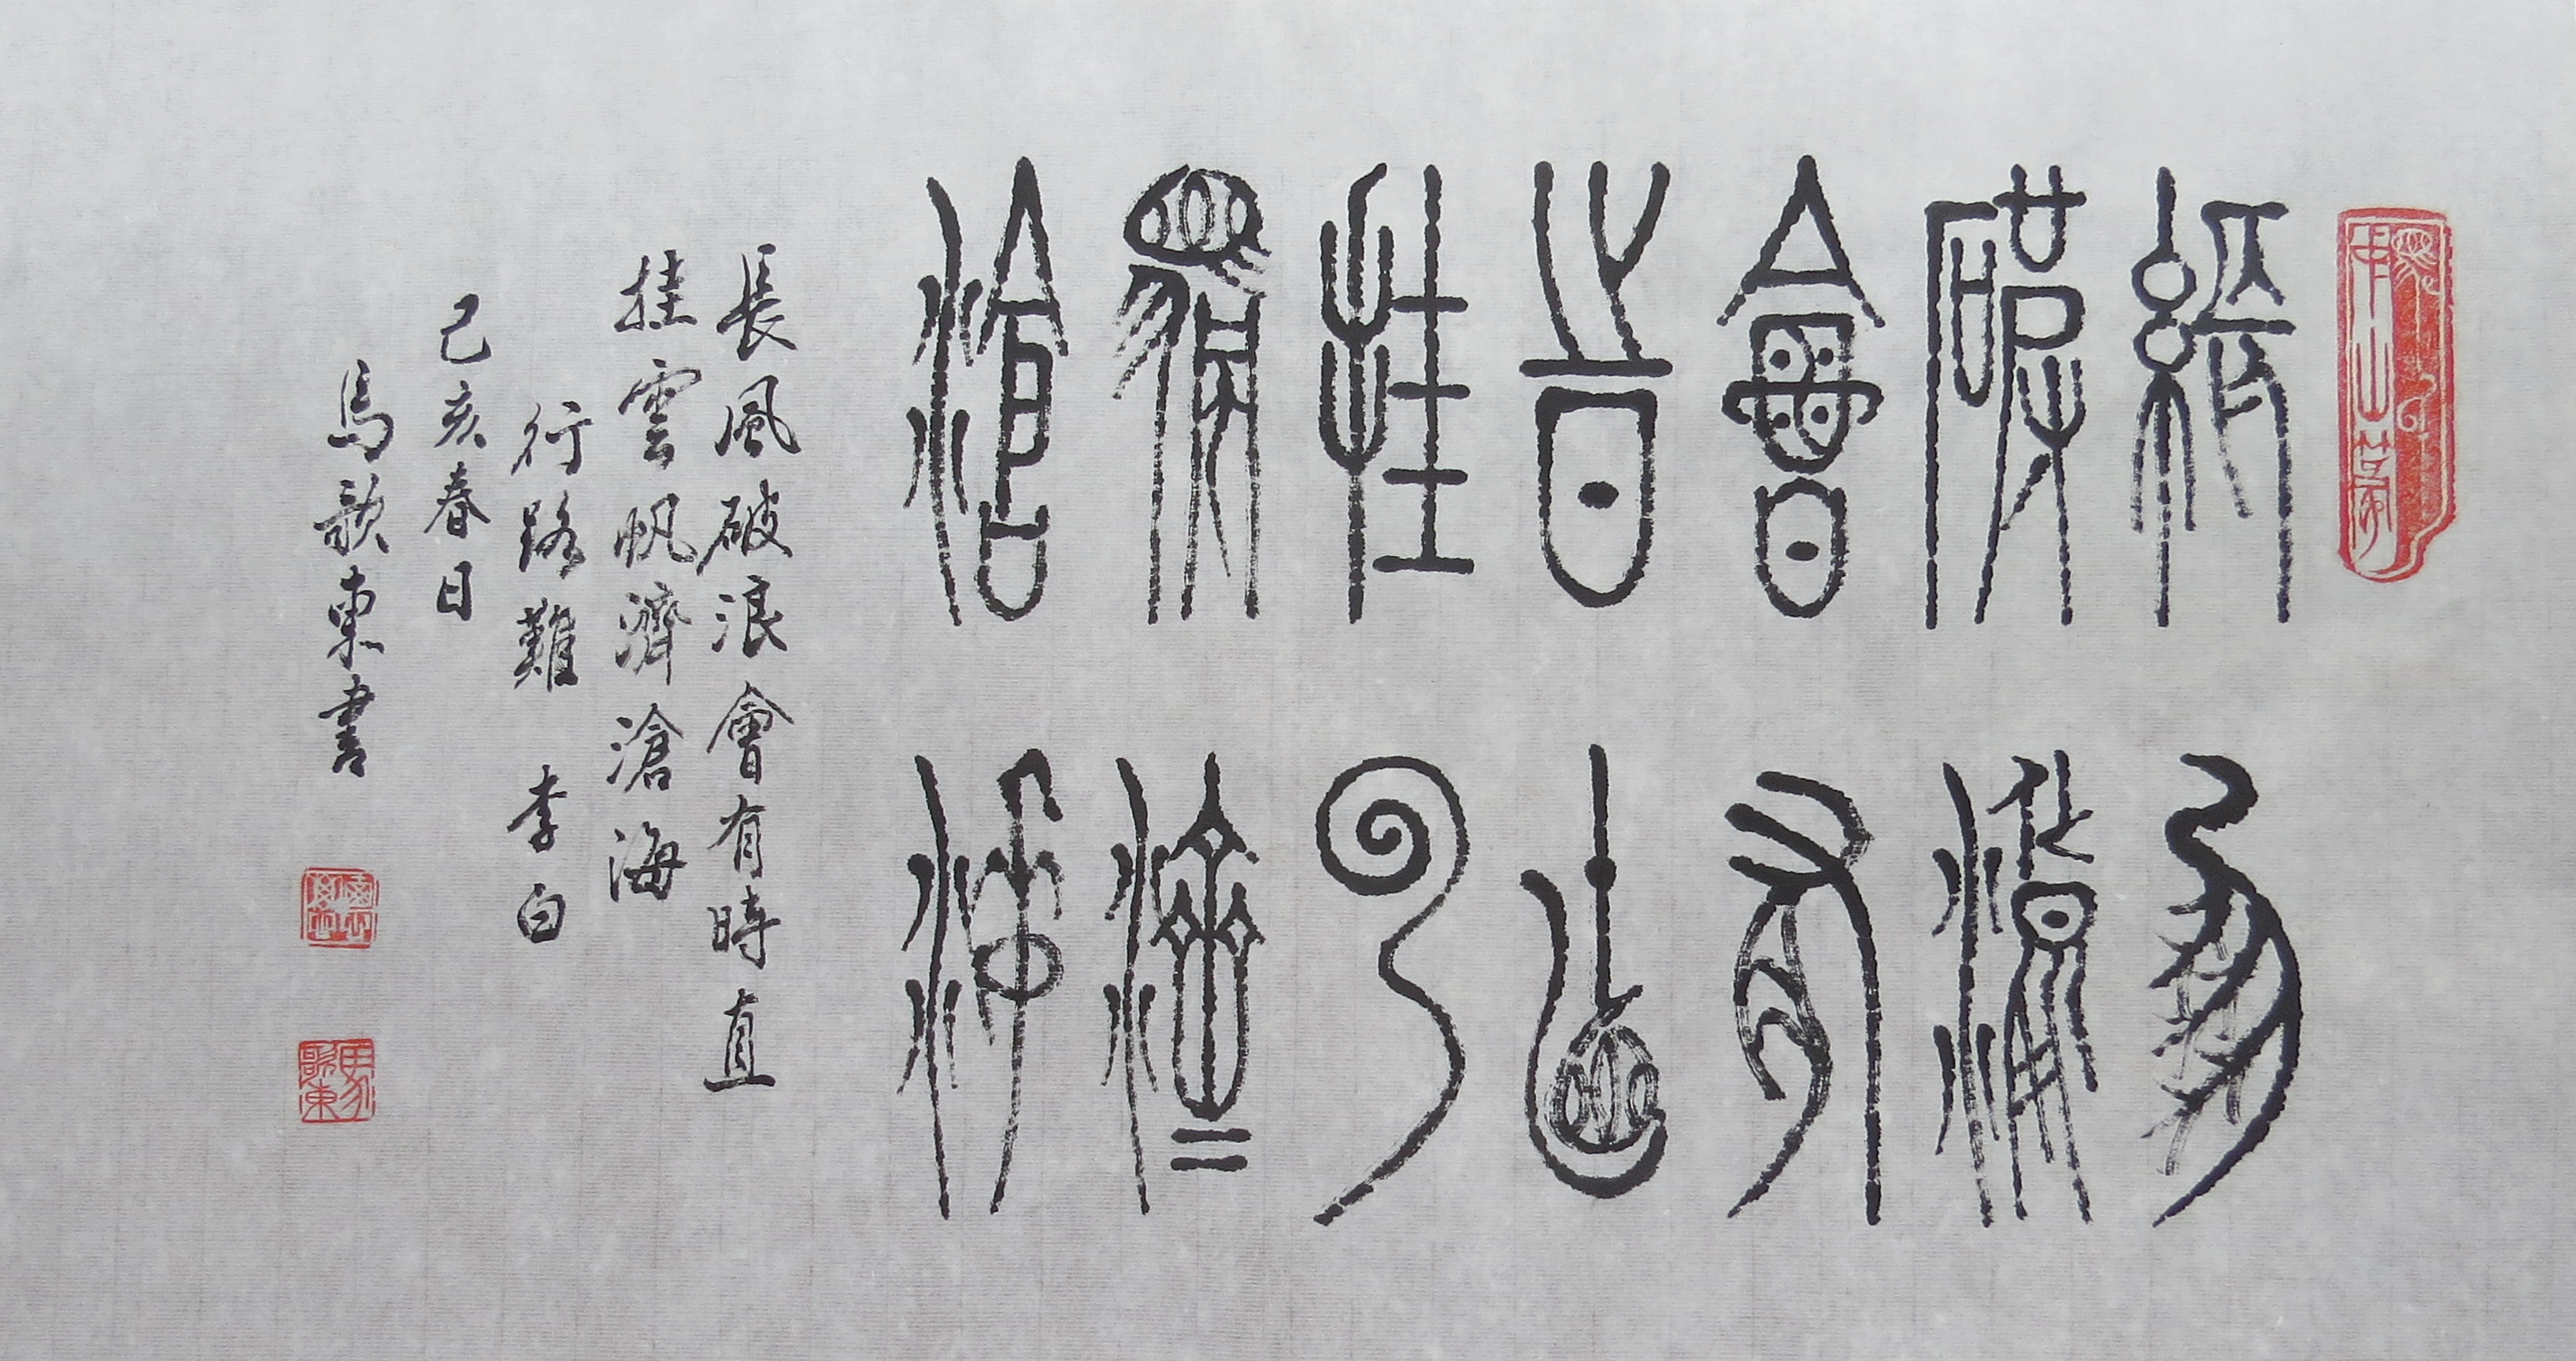 長風
破浪
會有
時直
挂雲
帆濟
滄海
長風破浪會有時直
挂雲帆濟滄海
行路難 李白
己亥春日
馬歌東書
馬歌東